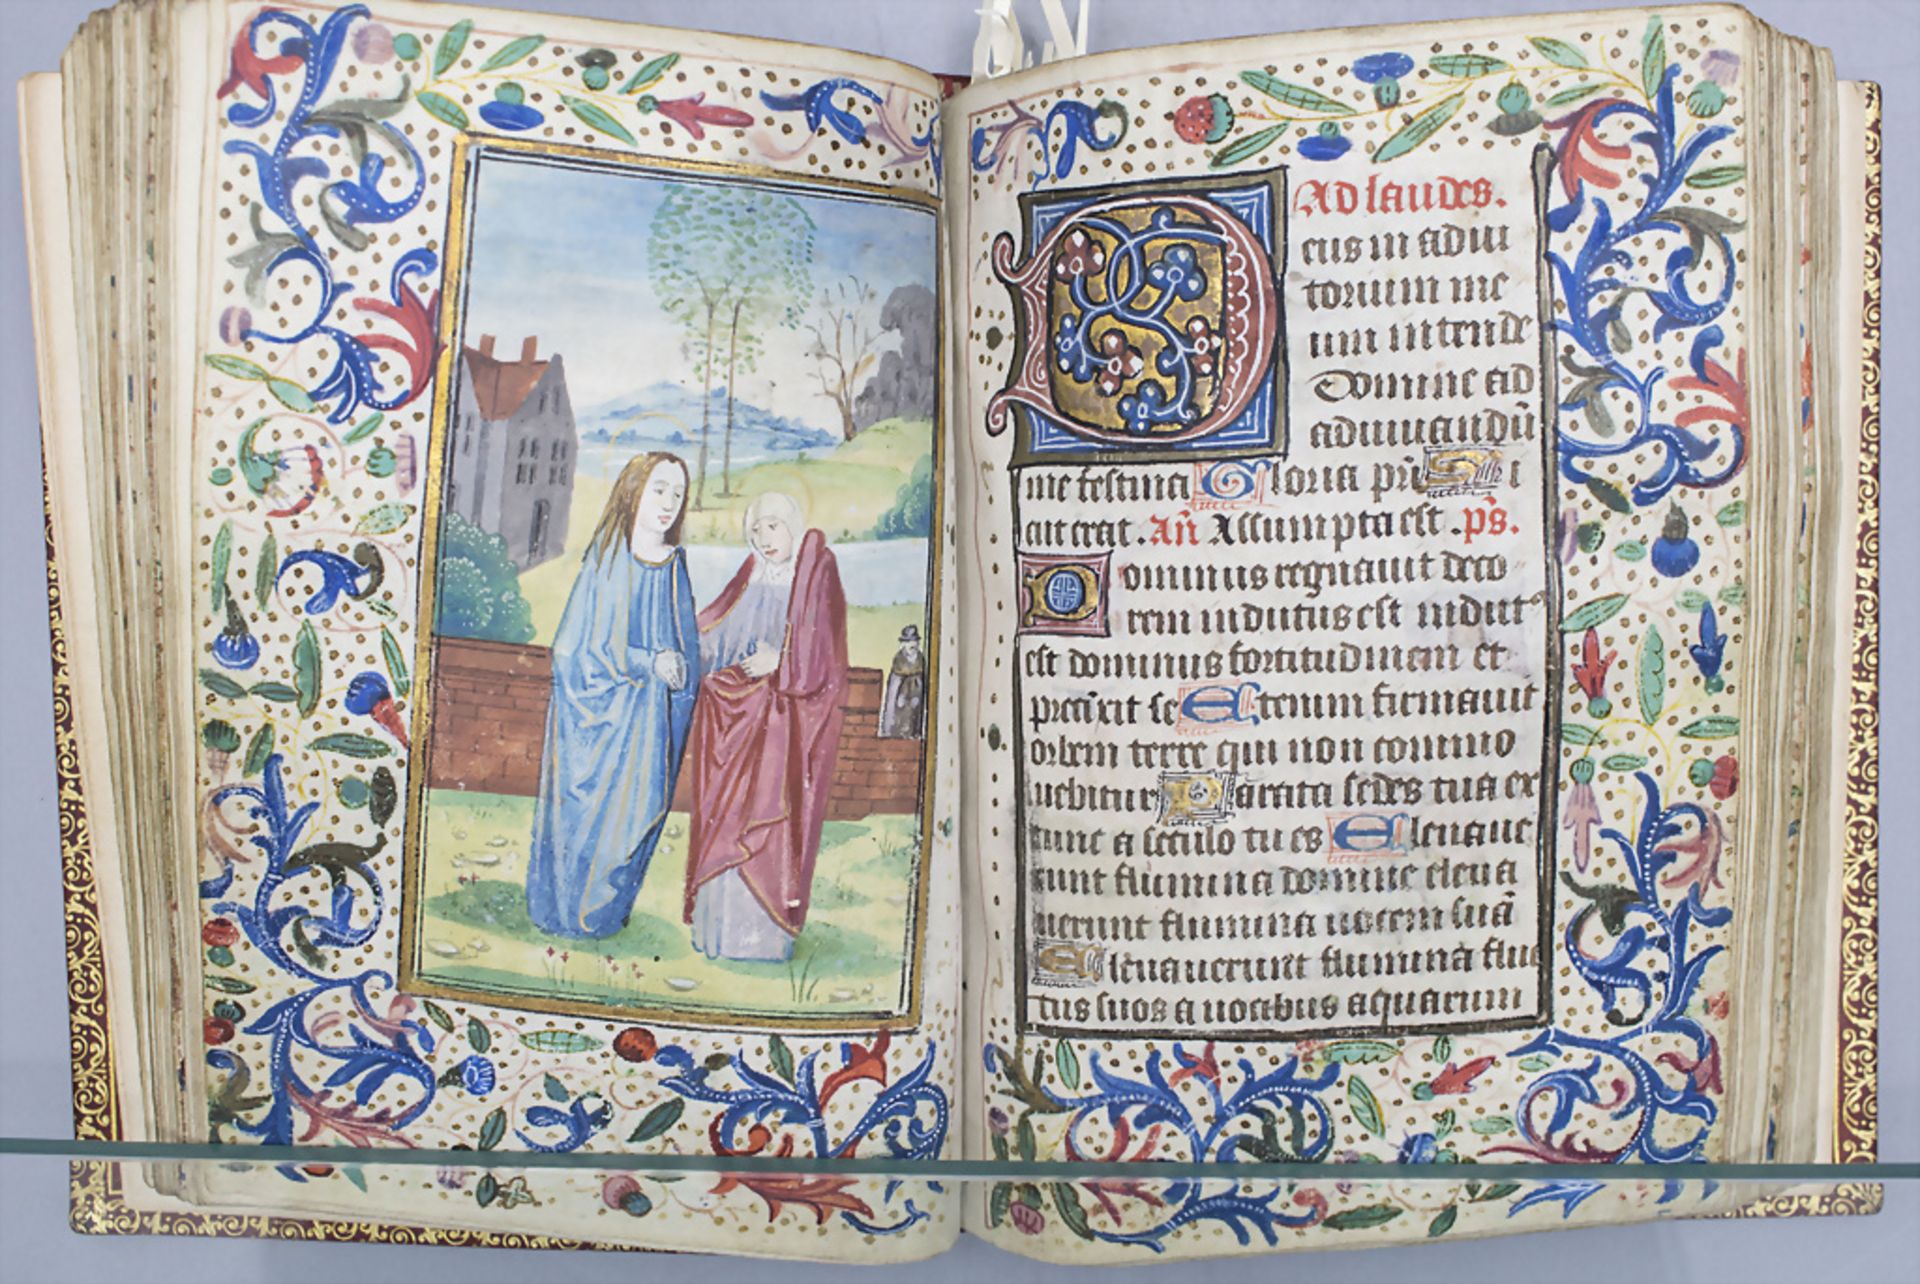 Ad laudes.
Deus in adiu
torium me
um intende
Domine ad
adiuuandū
me festina Gloria pr̄i Si
cut erat. An̄ Assumpta est. p̄s.
Dominus regnauit deco
rem indutus est indutꝰ
est dominus fortitudinem et
precīxit se Etenim firmauit
orbem terre qui non commo
uebitur Parata sedes tua ex
tunc a seculo tu es Eleuaue
runt flumina domine eleua
uerunt flumina uocem suā
Eleuauerunt flumina fluc
tus suos a uocibus aquarum